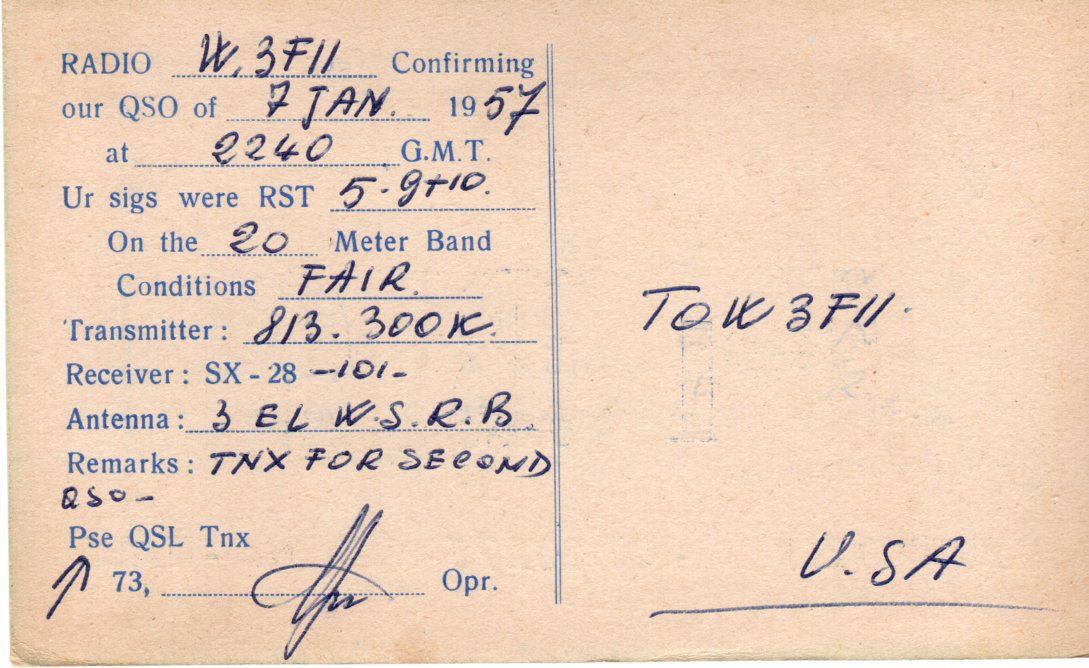 RADIO W. 3FII Confirming
our QSO of 7 JAN. 1957
at 2240 G.M.T.
Ur sigs were RST 5-9+10.
On the 20 Meter Band
Conditions FAIR.
Transmitter: 813. 300W.
Receiver: SX-28 -101-
Antenna: 3 EL W.S.R.B.
Remarks: TNX FOR SECOND
QSO-
Pse QSL Tnx
73, Opr.
TO W 3FII.
U.SA